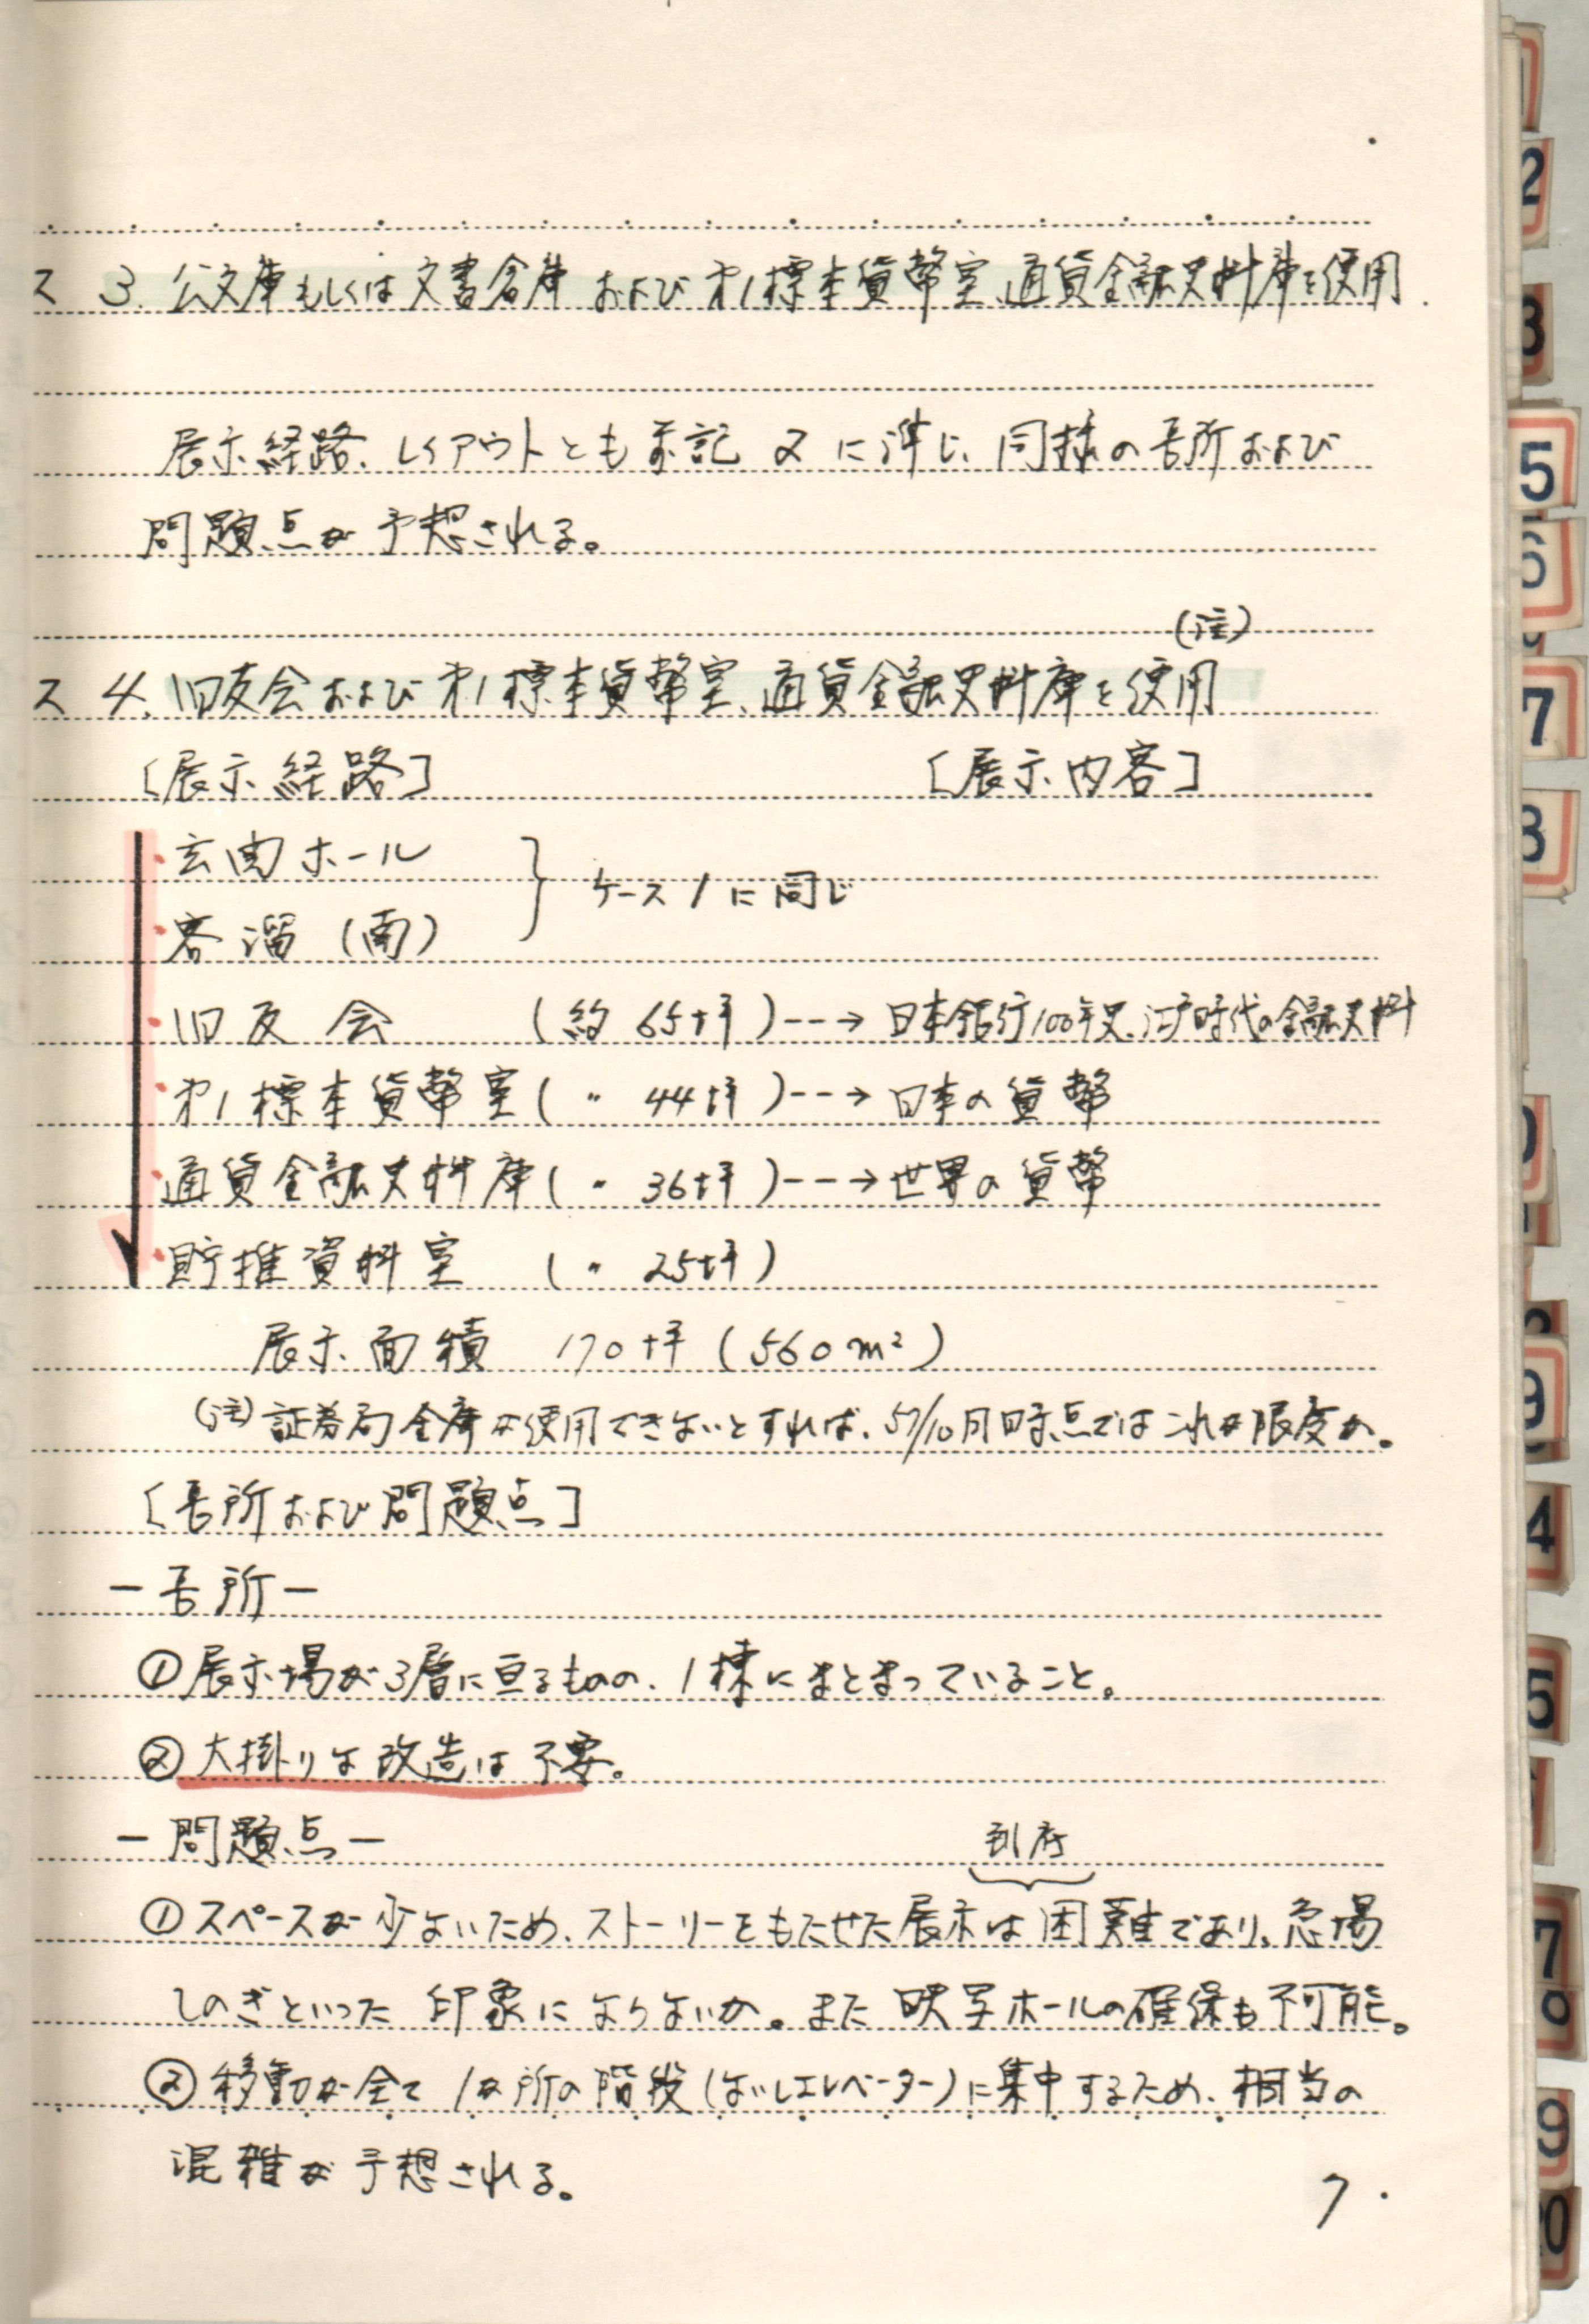 ス 3. 公文庫もしくは文書倉庫および第1標本貨幣室、通貨金融史料庫を使用.
展示経路、レイアウトとも前記 2 に準じ、同様の長所および
問題点が予想される。
(注)
ス 4. 旧友会および第1標本貨幣室、通貨金融史料庫を使用
[展示経路] [展示内容]
・玄関ホール
ケース1に同じ
・客溜 (南)
・旧友会 (約 65坪) --→ 日本銀行100年史、江戸時代の金融史料
・第1標本貨幣室 (〃 44坪) --→ 日本の貨幣
・通貨金融史料庫 (〃 36坪) --→ 世界の貨幣
・貯推資料室 (〃 25坪)
展示面積 170坪 (560m²)
(注) 証券局金庫が使用できないとすれば、57/10月時点ではこれが限度か。
[長所および問題点]
ー長所ー
①展示場が3層に亘るものの、1棟にまとまっていること。
②大掛りな改造は不要。
ー問題点ー
到底
①スペースが少ないため、ストーリーをもたせた展示は困難であり、急場
しのぎといった印象にならないか。また映写ホールの確保も不可能。
②移動が全て1か所の階段(ないしエレベーター)に集中するため、相当の
混雑が予想される。
7.
2
3
5
6
7
8
9
4
5
7
8
9
10